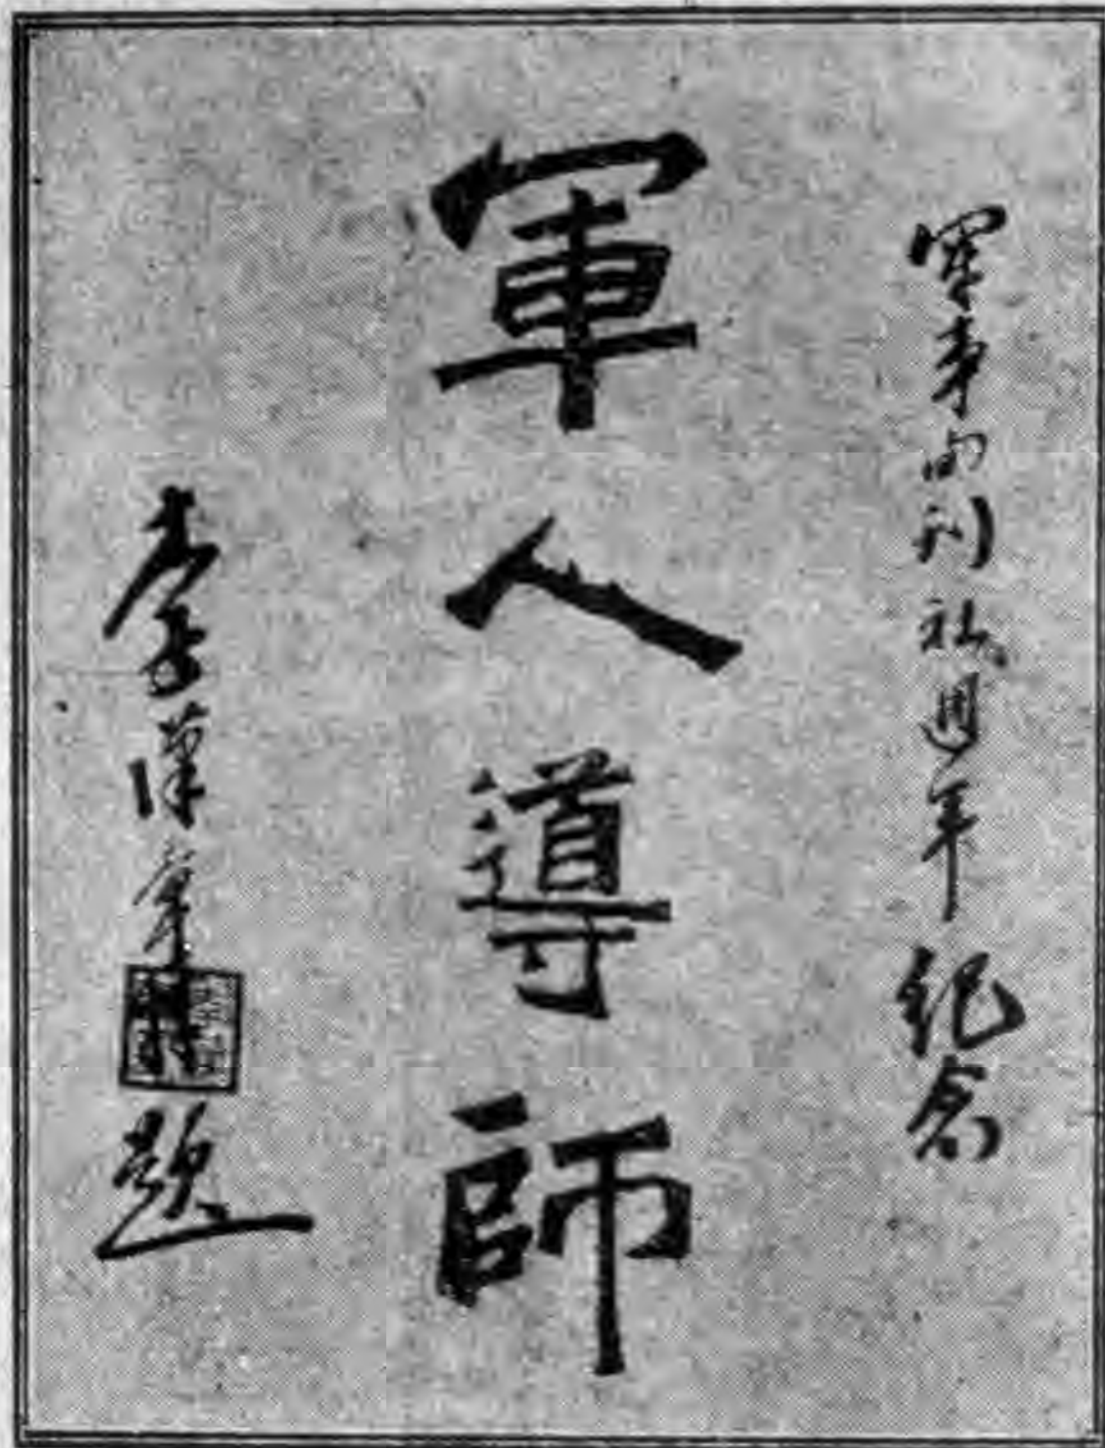 軍事旬刊社週年紀念
軍人導師
李漢章題